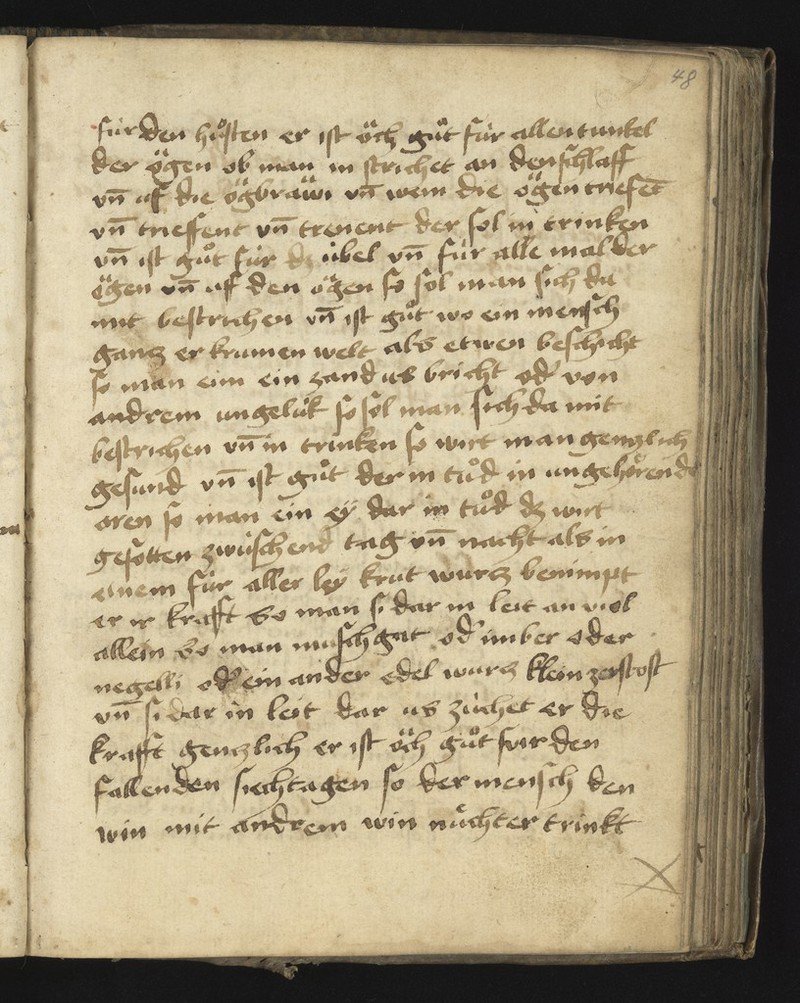 48
für den hůsten er ist öch gůt für allen tunkel
der ögen ob man in strichet an den schlaff
vn̄ uf die ögbräwi vn̄ wem die ögen triefēt
vn̄ trieffent vn̄ trenent der sol in trinken
vn̄ ist gůt für dz übel vn̄ für alle mal der
ögen vn̄ uf den ögen so sol man sich da
mit bestrichen vn̄ ist gůt wo ein mensch
gancz erkrumen welt als etwen beschicht
so man eim ein zand us bricht od̓ von
andrem ungelük so sol man sich da mit
bestrichen vn̄ in trinken so wirt man genczlich
gesund vn̄ ist gůt der in tůd in ungehörende
oren so man ein eÿ dar in tůd dz wirt
gesotten zwüschend tag vn̄ nacht als in
einem für aller leÿ krut wurcz benimpt
er ir krafft so man si dar in leit an viol
allein so man muschgat od̓ imber oder
negelli od̓ ein ander edel wurcz klein zerstost
vn̄ si dar in leit dar us züchet er die
krafft genczlich er ist öch gůt für den
fallenden siechtagen so der mensch den
win mit andrem win nüchter trinkt